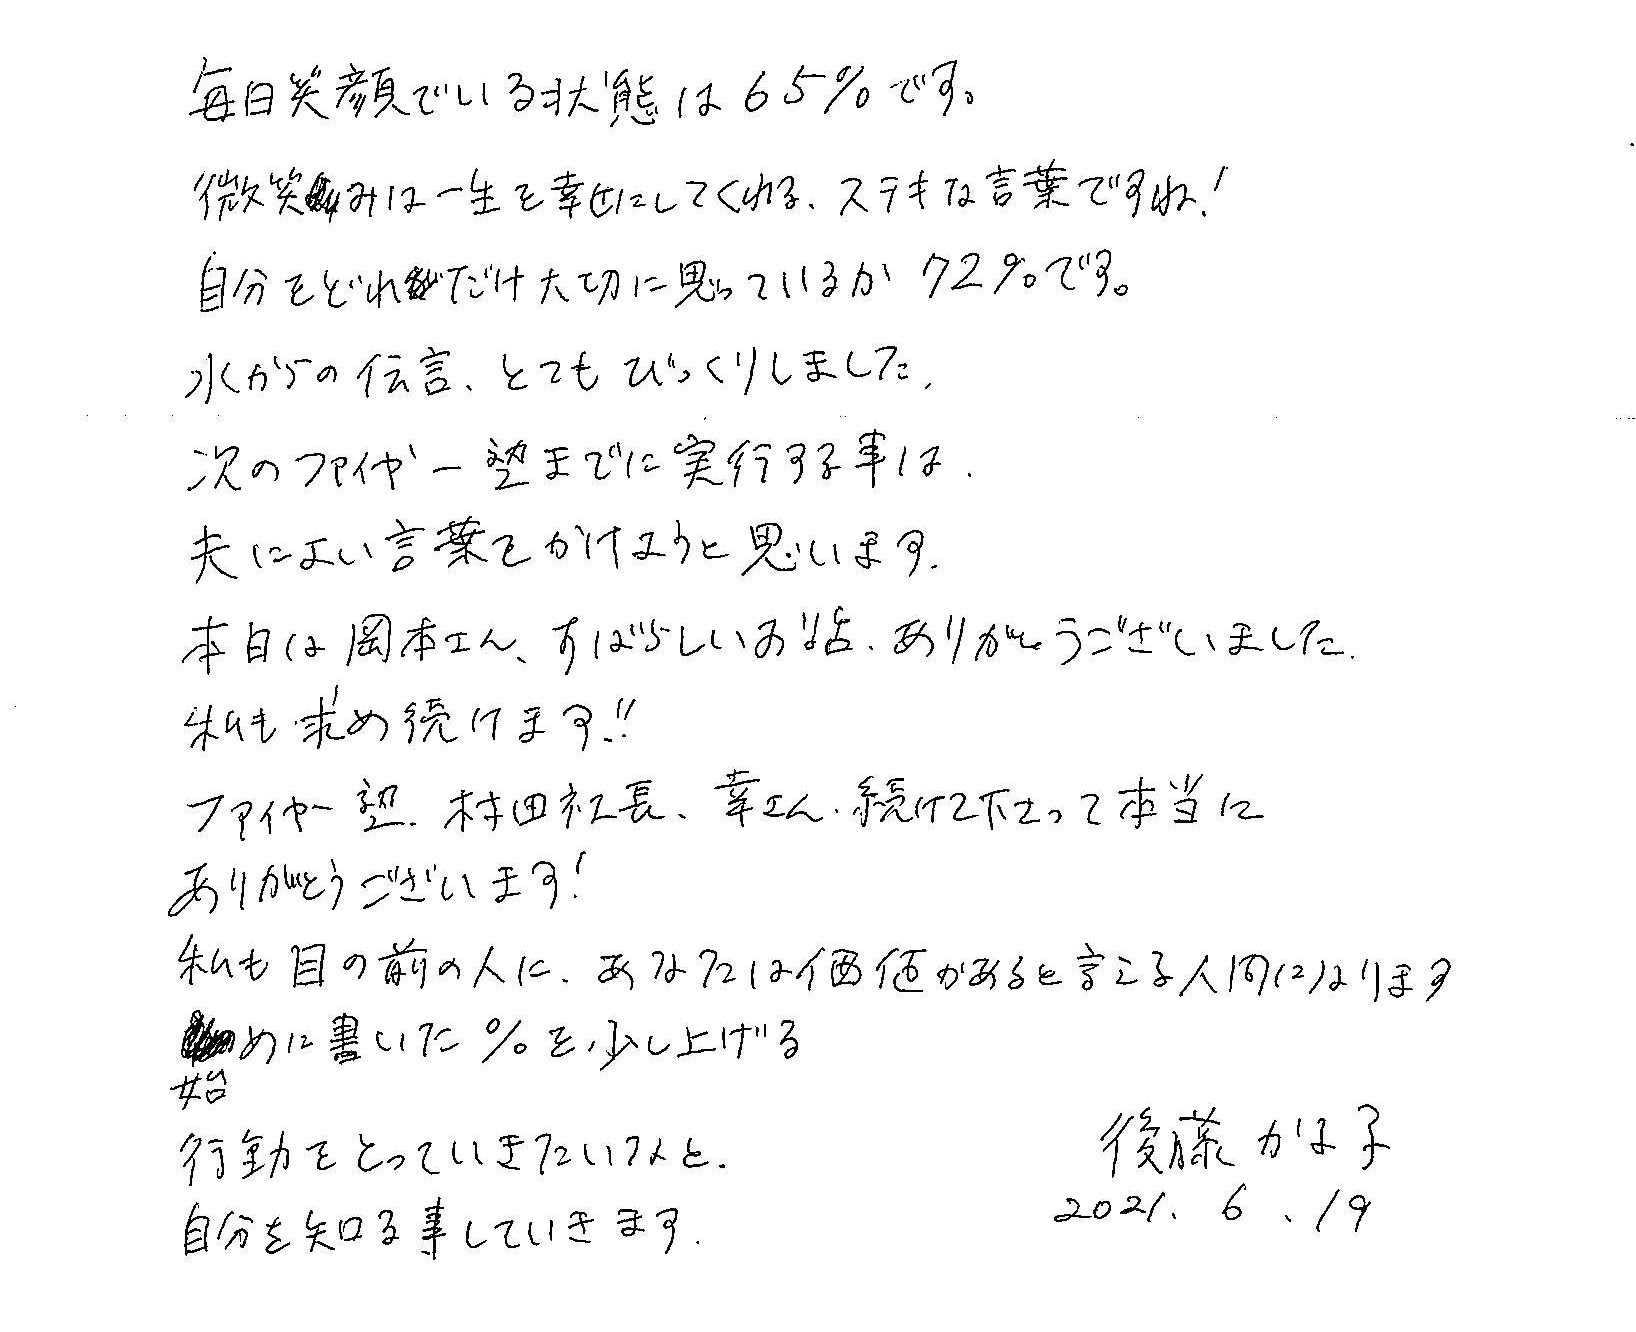 毎日笑顔でいる状態は65%です。
微笑みは一生を幸せにしてくれる、ステキな言葉ですね!
自分をどれだけ大切に思っているか 72%です。
水からの伝言、とてもびっくりしました。
次のファイヤー塾までに実行する事は、
夫によい言葉をかけようと思います。
本日は岡本さん、すばらしいお話、ありがとうございました。
私も求め続けます!!
ファイヤー塾、村田社長、幸さん、続けて下さって本当に
ありがとうございます!
私も目の前の人に、あなたは価値があると言える人間になります
始めに書いた%を少し上げる
行動をとっていきたい
自分を知る事していきます。
後藤 かほ子
2021. 6 .19